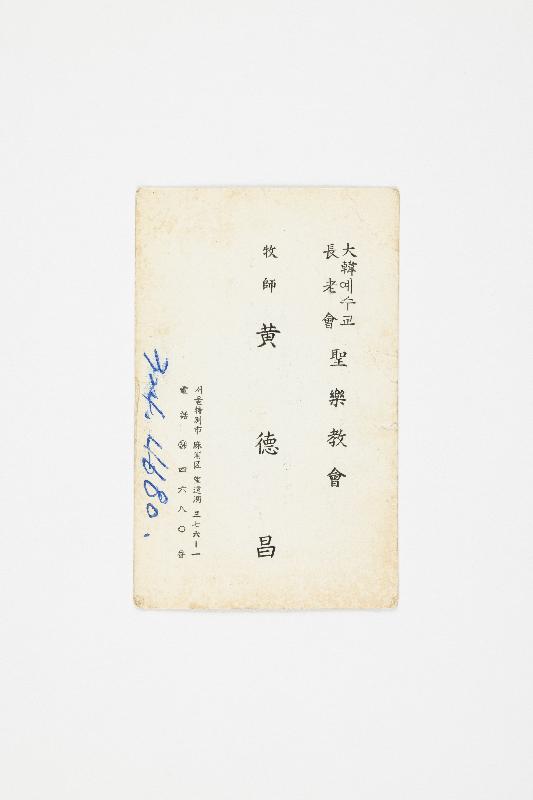 大韓예수교
長老會
聖樂教會
牧師 黃德昌
서울特別市 麻浦區 望遠洞 三七六-一
電話 ㉞ 四六八〇番
4680.